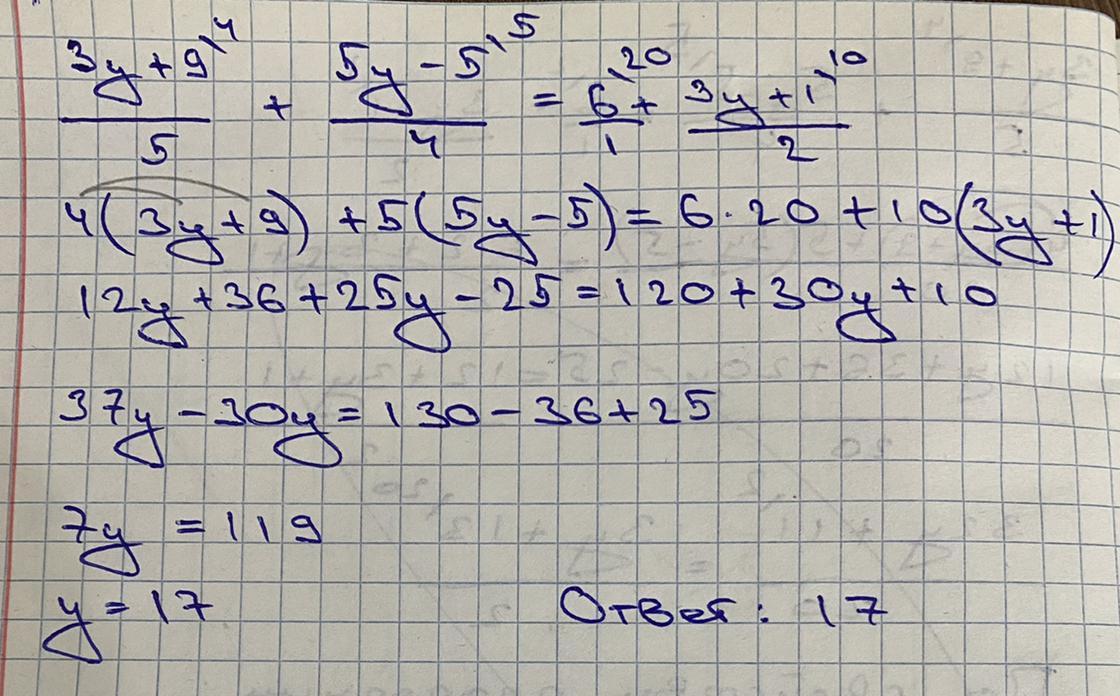 (3y+9)/5 \4 + (5y-5)/4 \5 = 6/1 \20 + (3y+1)/2 \10
4(3y+9) +5(5y-5)=6·20+10(3y+1)
12y+36+25y-25=120+30y+10
37y-30y=130-36+25
7y=119
y=17 Ответ: 17